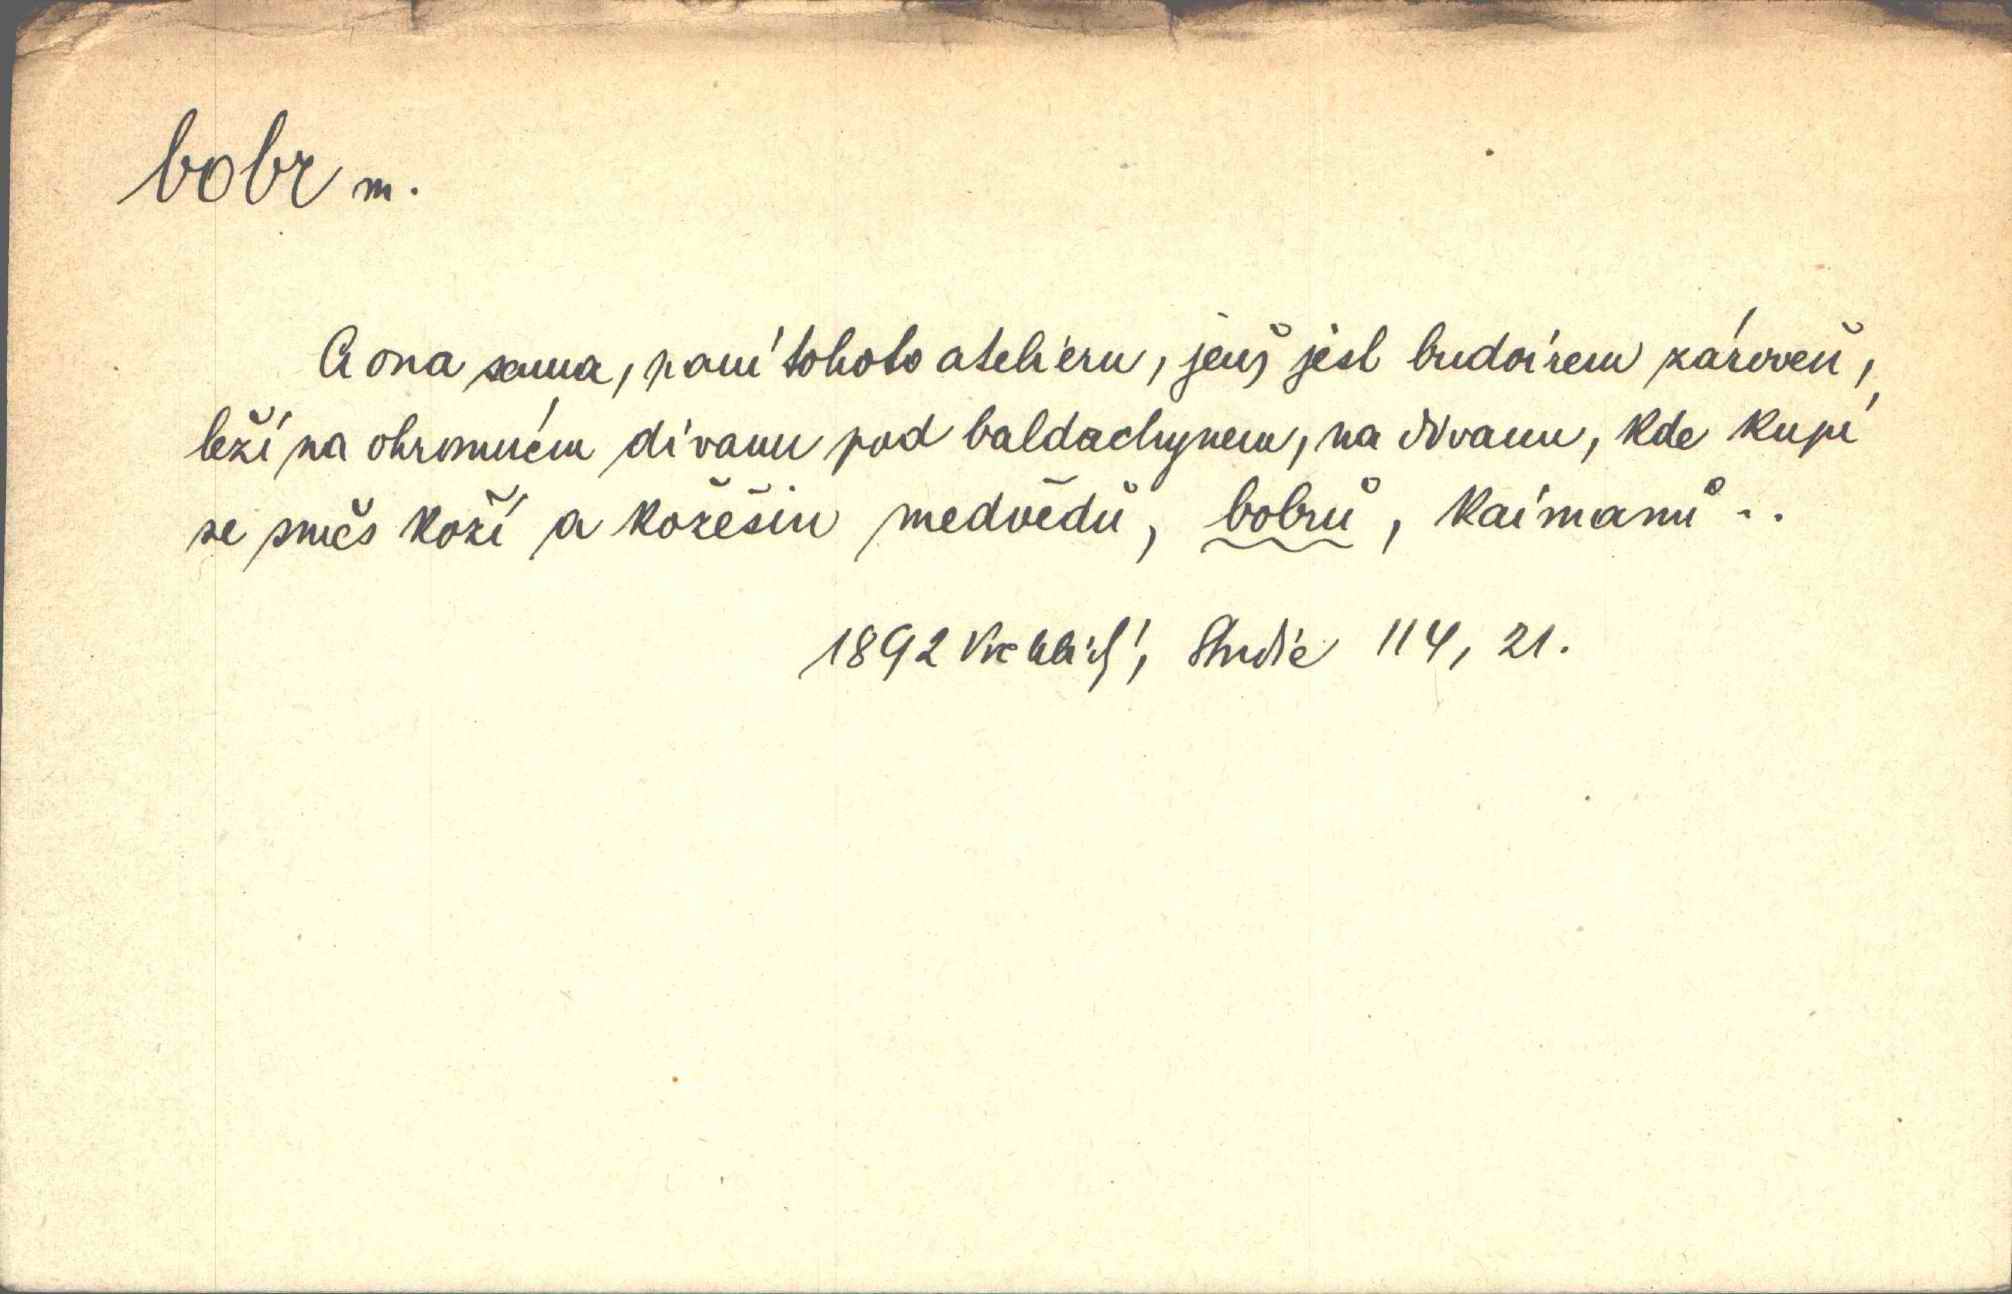 bobr m.
A ona sama, paní tohoto ateliéru, jenž jest budoirem zároveň,
leží na ohromném divanu pod baldachynem, na divanu, kde kupí
se směs koží a kožešin medvědů, bobrů, kaimanů..
1892 Vrchlický, Studie 114, 21.